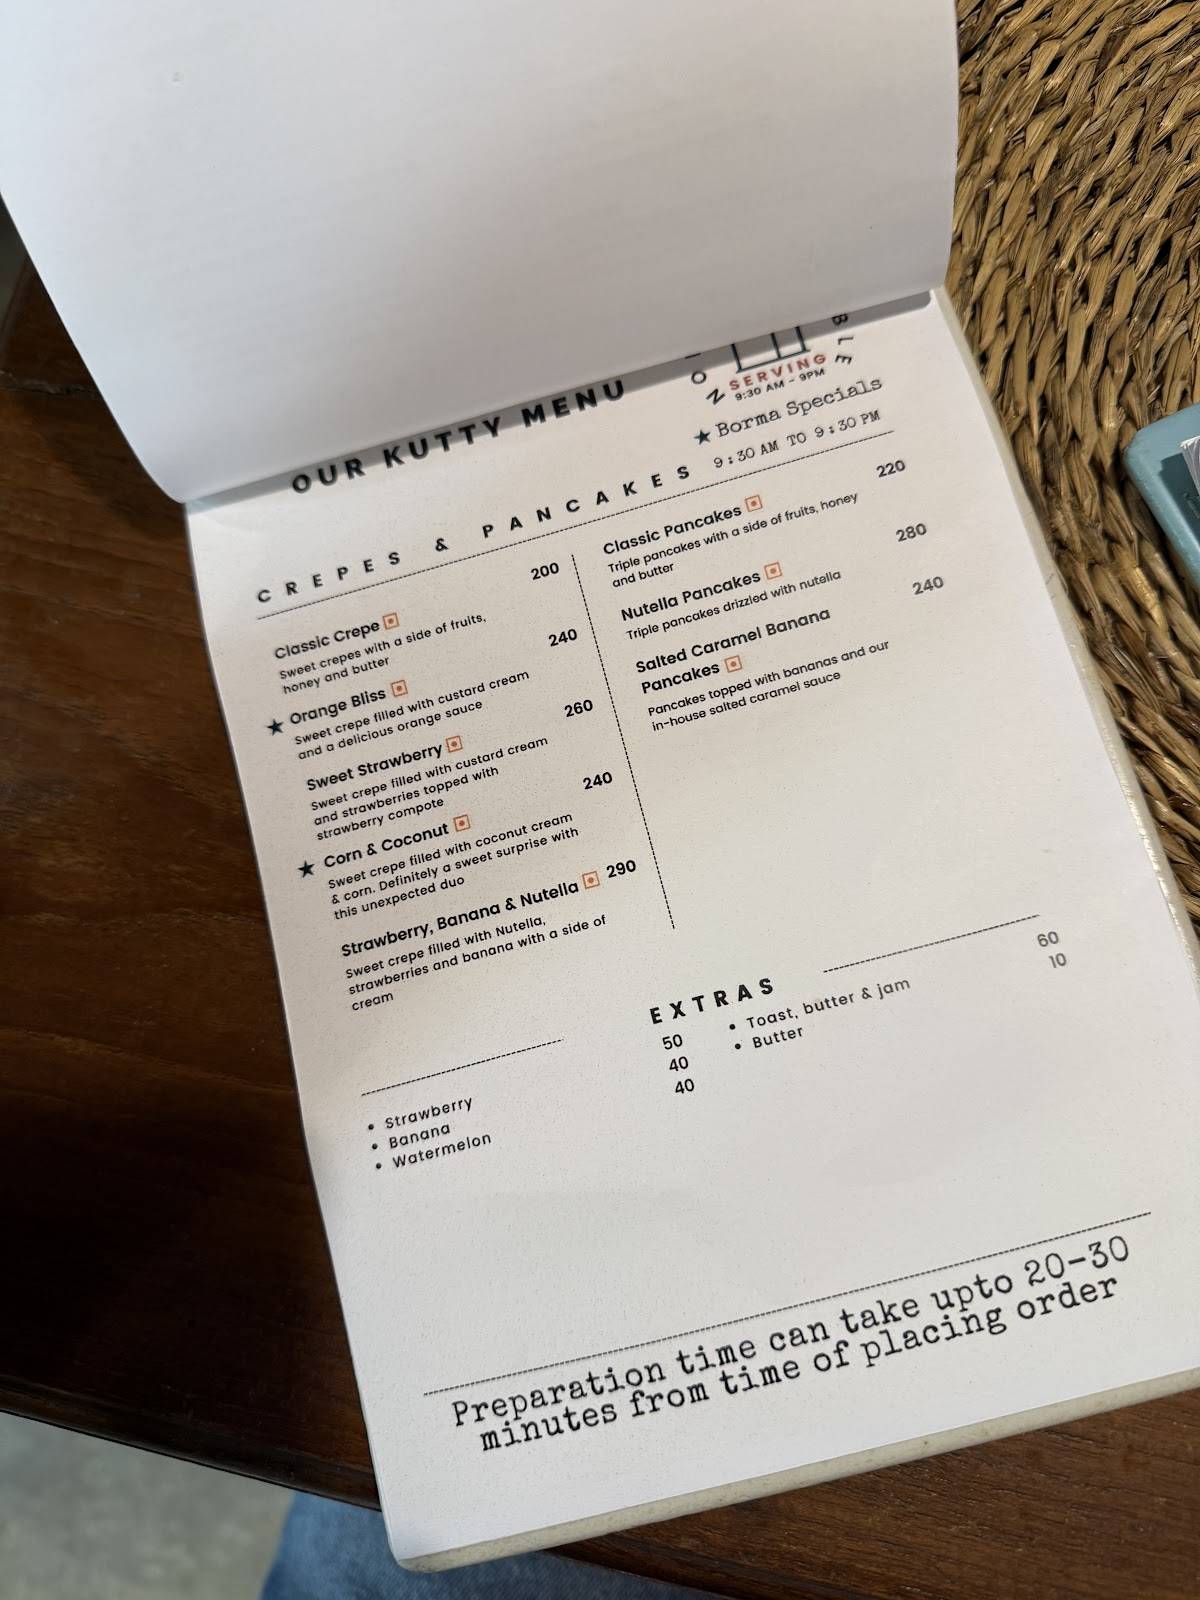 OUR KUTTY MENU
SERVING
9:30 AM - 9PM
★ Borma Specials
CREPES & PANCAKES
9:30 AM TO 9:30 PM
Classic Crepe 200
Sweet crepes with a side of fruits,
honey and butter
★ Orange Bliss 240
Sweet crepe filled with custard cream
and a delicious orange sauce
Sweet Strawberry 260
Sweet crepe filled with custard cream
and strawberries topped with
strawberry compote
★ Corn & Coconut 240
Sweet crepe filled with coconut cream
& corn. Definitely a sweet surprise with
this unexpected duo
Strawberry, Banana & Nutella 290
Sweet crepe filled with Nutella,
strawberries and banana with a side of
cream
Classic Pancakes 220
Triple pancakes with a side of fruits, honey
and butter
Nutella Pancakes 280
Triple pancakes drizzled with nutella
Salted Caramel Banana 240
Pancakes
Pancakes topped with bananas and our
in-house salted caramel sauce
EXTRAS
• Strawberry 50
• Banana 40
• Watermelon 40
• Toast, butter & jam 60
• Butter 10
Preparation time can take upto 20-30
minutes from time of placing order